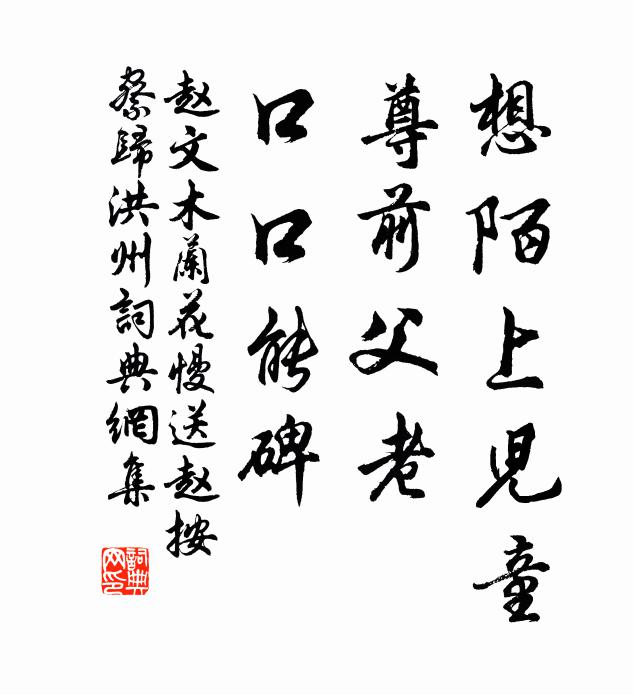 想陌上児童
尊前父老
口口能碑
赵文木蘭花慢送赵按
察歸洪州詞典網集
詞典
网印